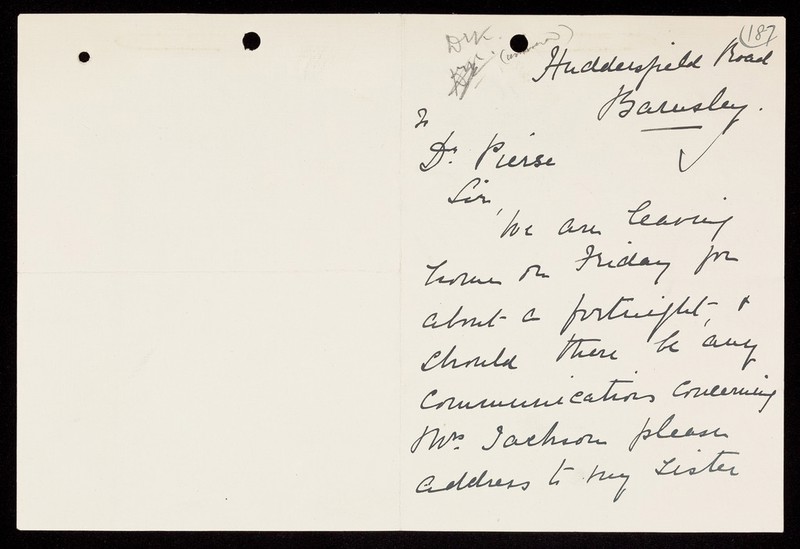 187
Huddersfield Road
Barnsley.
To
Dr. Pierse
Sir,
We are leaving
home on Friday for
about a fortnight, &
should there be any
communications concerning
Mrs. Jackson please
address to my sister